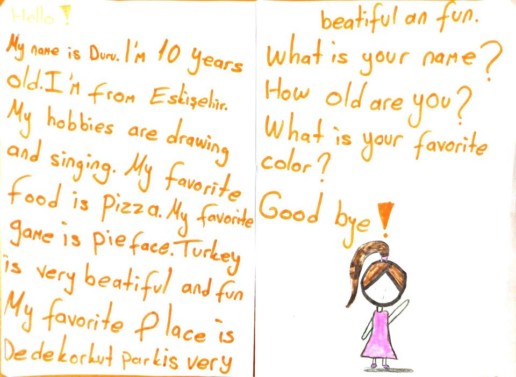 Hello!
My name is Duru. I'm 10 years
old. I'm from Eskişehir.
My hobbies are drawing
and singing. My favorite
food is pizza. My favorite
game is pie face. Turkey
is very beatiful and fun
My favorite place is
Dedekorkut parkis very
beatiful an fun.
What is your name?
How old are you?
What is your favorite
color?
Good bye!